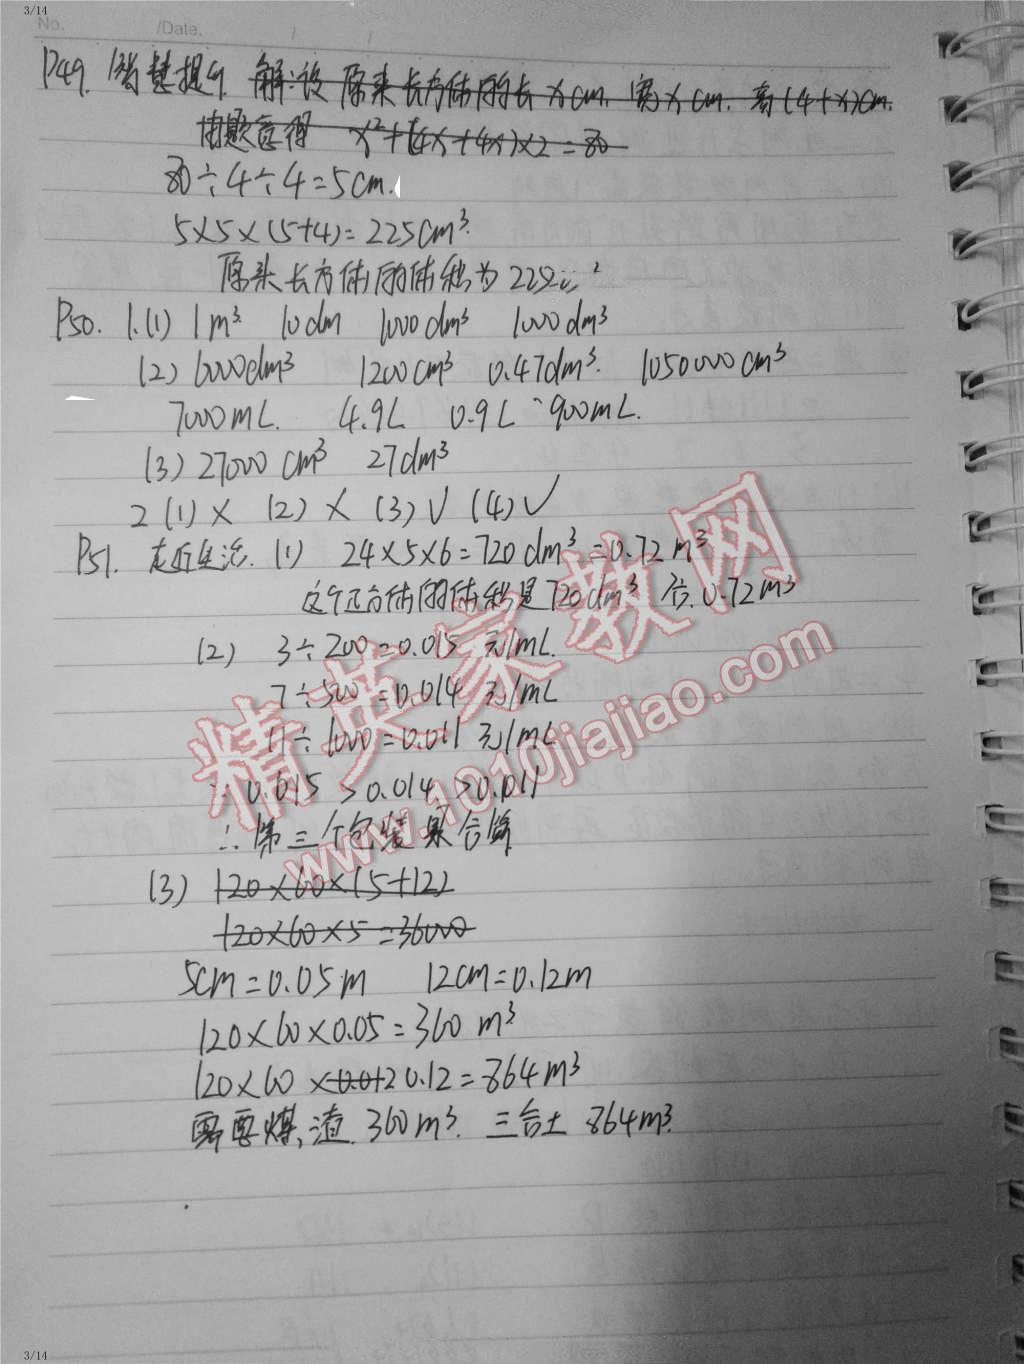 3/14
No. /Date. / /
P49. 智慧提升. 解:设 原来长方体的长 x cm. 宽 x cm. 高 (4+x)cm.
由题意得 x²+(4x+4x)×2=80
80÷4÷4=5cm.
5×5×(5+4)=225cm³.
原来长方体的体积为 225
P50. 1.(1) 1m³ 10dm 1000dm³ 1000dm³
(2) 6000dm³ 1200cm³ 0.47dm³. 1050000cm³
7000mL. 4.9L 0.9L 900mL.
(3) 27000cm³ 27dm³
2 (1) × (2) × (3) √ (4) √
P51. 走近生活. (1) 24×5×6=720dm³=0.72m³
这个正方体的体积是720dm³ 合0.72m³
(2) 3÷200=0.015 元/mL.
7÷500=0.014 元/mL
11÷1000=0.011 元/mL
∵ 0.015 >0.014 >0.011
∴ 第三个包装最合算
(3) 120×60×(5+12)
120×60×5=36000
5cm=0.05m 12cm=0.12m
120×60×0.05=360 m³
120×60 ×0.012 0.12=864m³
需要煤渣 360m³. 三合土 864m³.
精英家教网
www.1010jiajiao.com
3/14